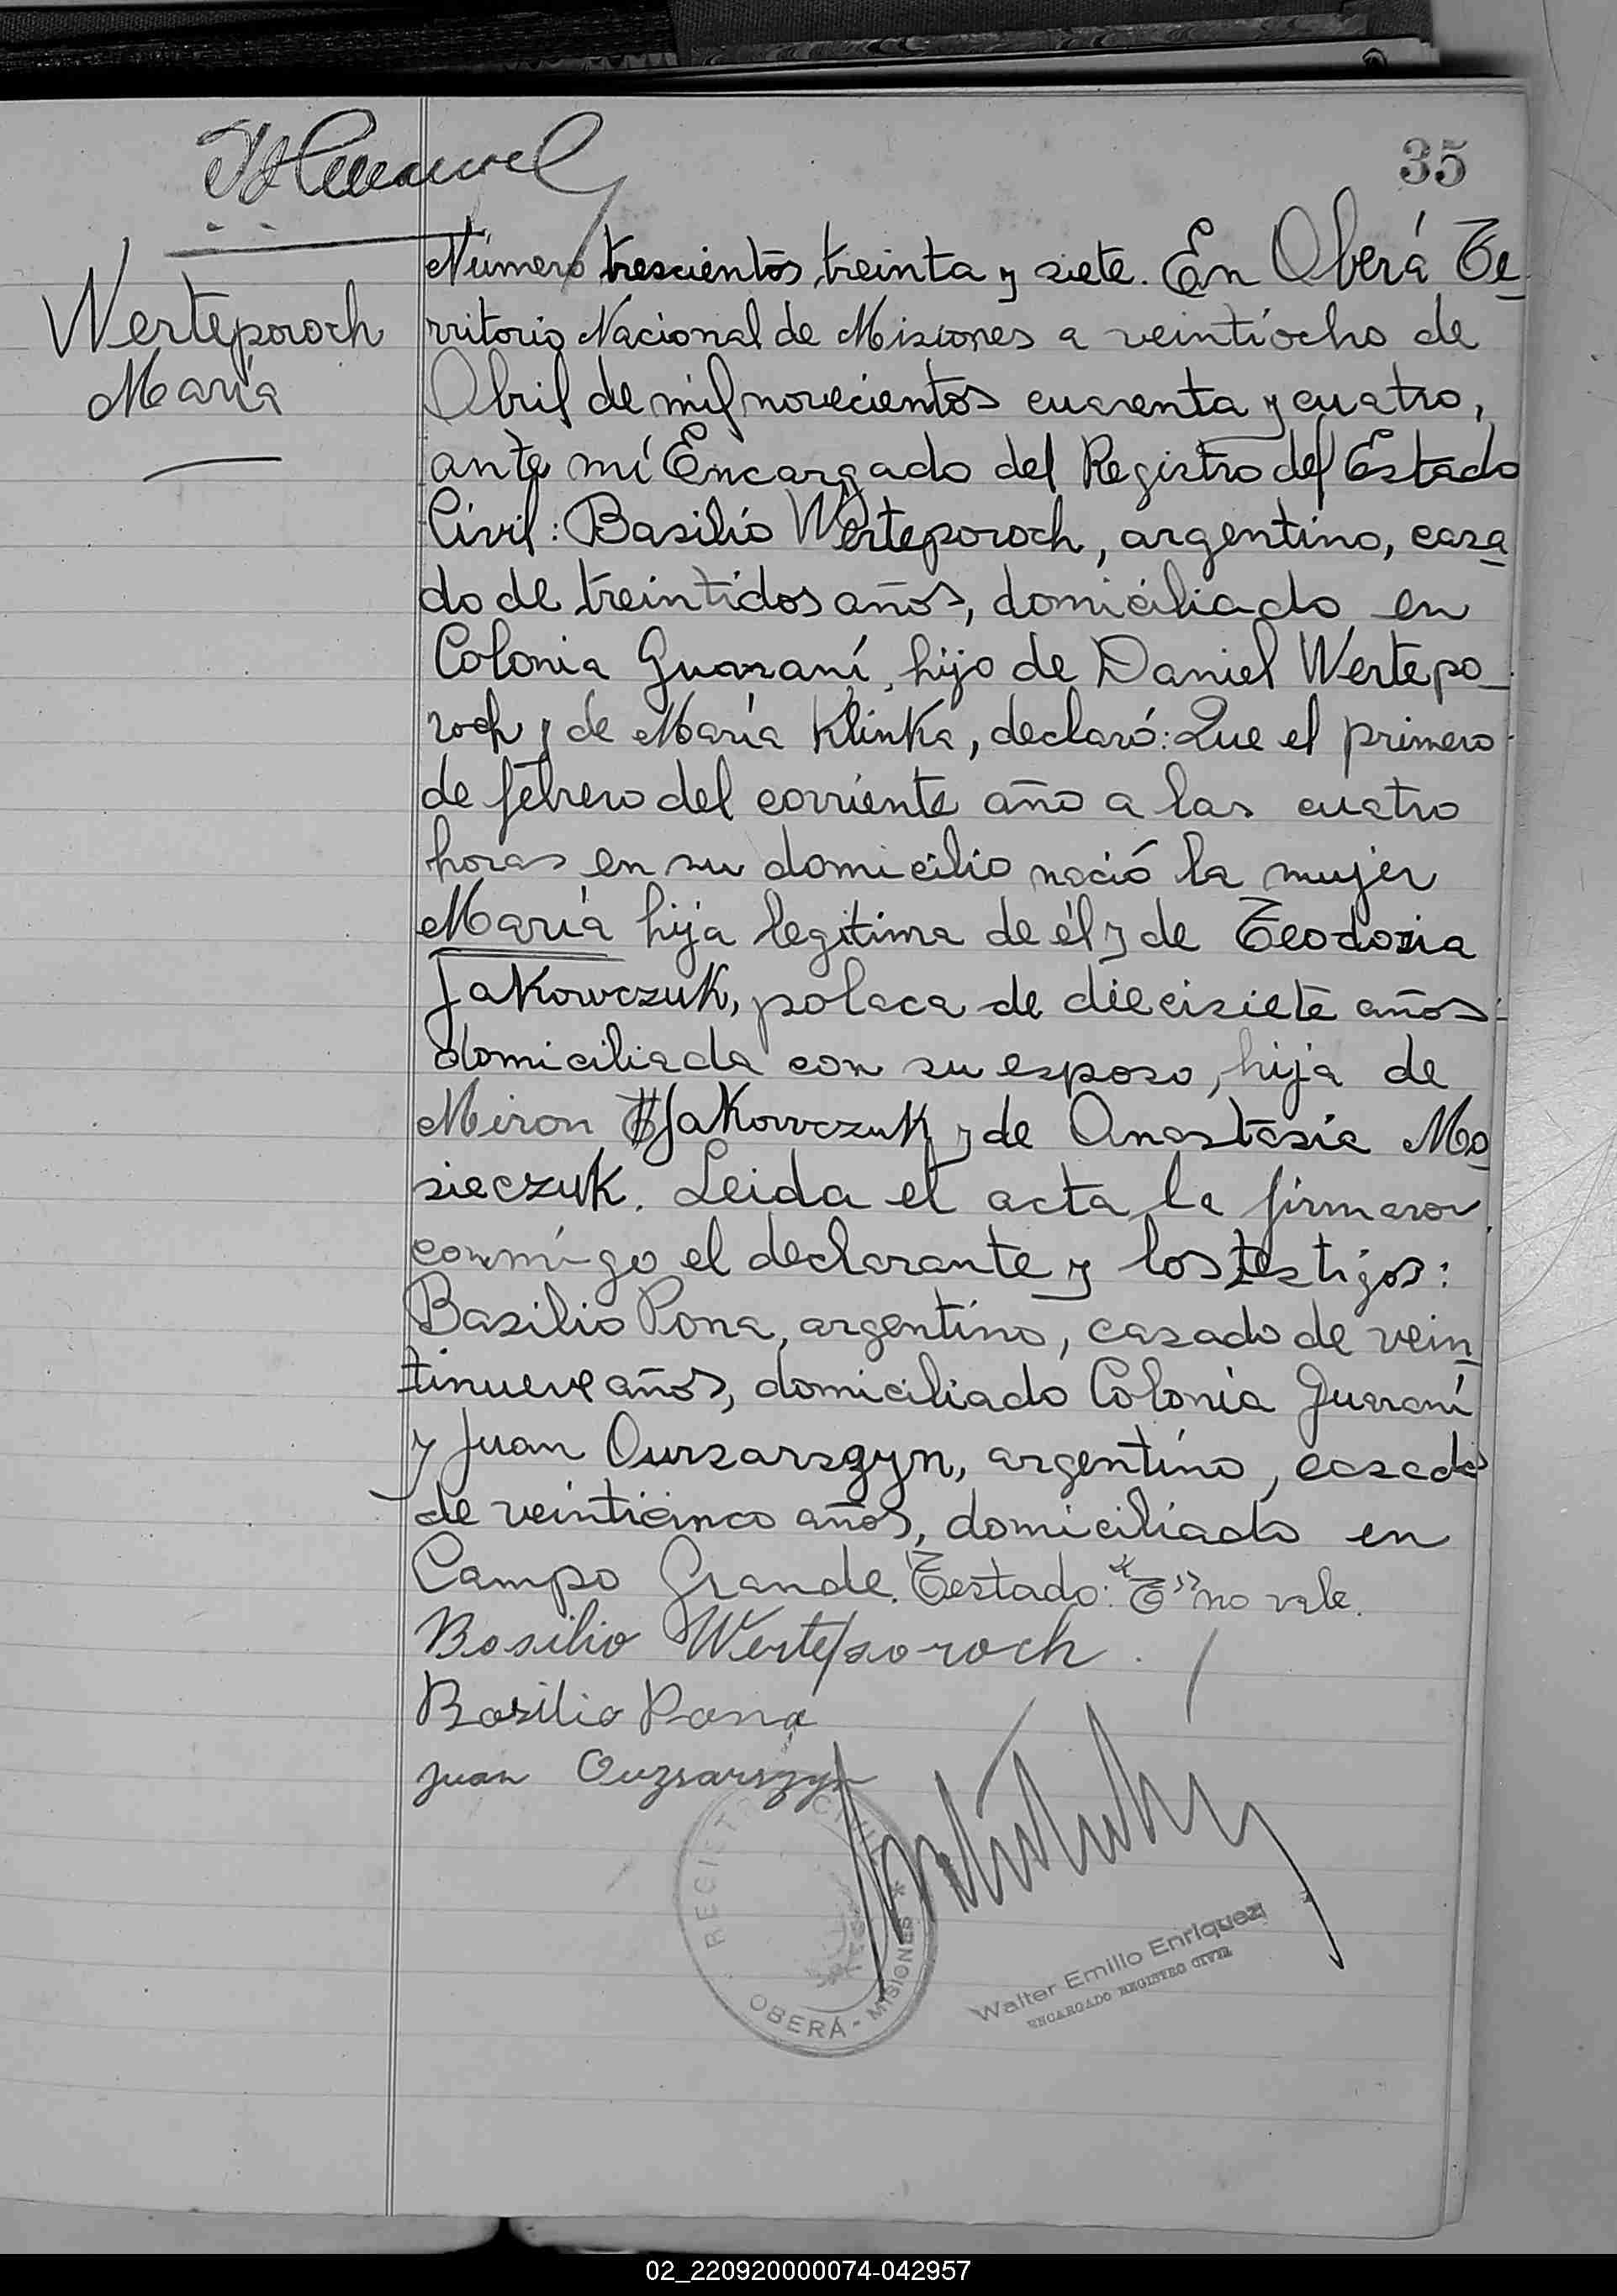 35
Werteporoch
María
Número trescientos treinta y siete. En Oberá Te-
rritorio Nacional de Misiones a veintiocho de
Abril de mil novecientos cuarenta y cuatro,
ante mí Encargado del Registro del Estado
Civil: Basilio Werteporoch, argentino, casa-
do de treintidos años, domiciliado en
Colonia Guaraní, hijo de Daniel Wertepo-
roch y de María Klinka, declaró: Que el primero
de febrero del corriente año a las cuatro
horas en su domicilio nació la mujer
María hija legitima de él y de Teodosia
Jakowczuk, polaca de diecisiete años
domiciliada con su esposo, hija de
Miron Jakowczuk y de Anastasia Mo-
sieczuk. Leida el acta la firmaron
conmigo el declarante y los testigos:
Basilio Pona, argentino, casado de vein-
tinueve años, domiciliado Colonia Guaraní
y Juan Oursarszyn, argentino, casado
de veinticinco años, domiciliado en
Campo Grande. Testado: "T" no vale.
Basilio Werteporoch
Basilio Pona
Juan Ouzsarszyn
REGISTRO CIVIL
OBERÁ - MISIONES *
Walter Emilio Enriquez
ENCARGADO REGISTRO CIVIL
02_220920000074-042957